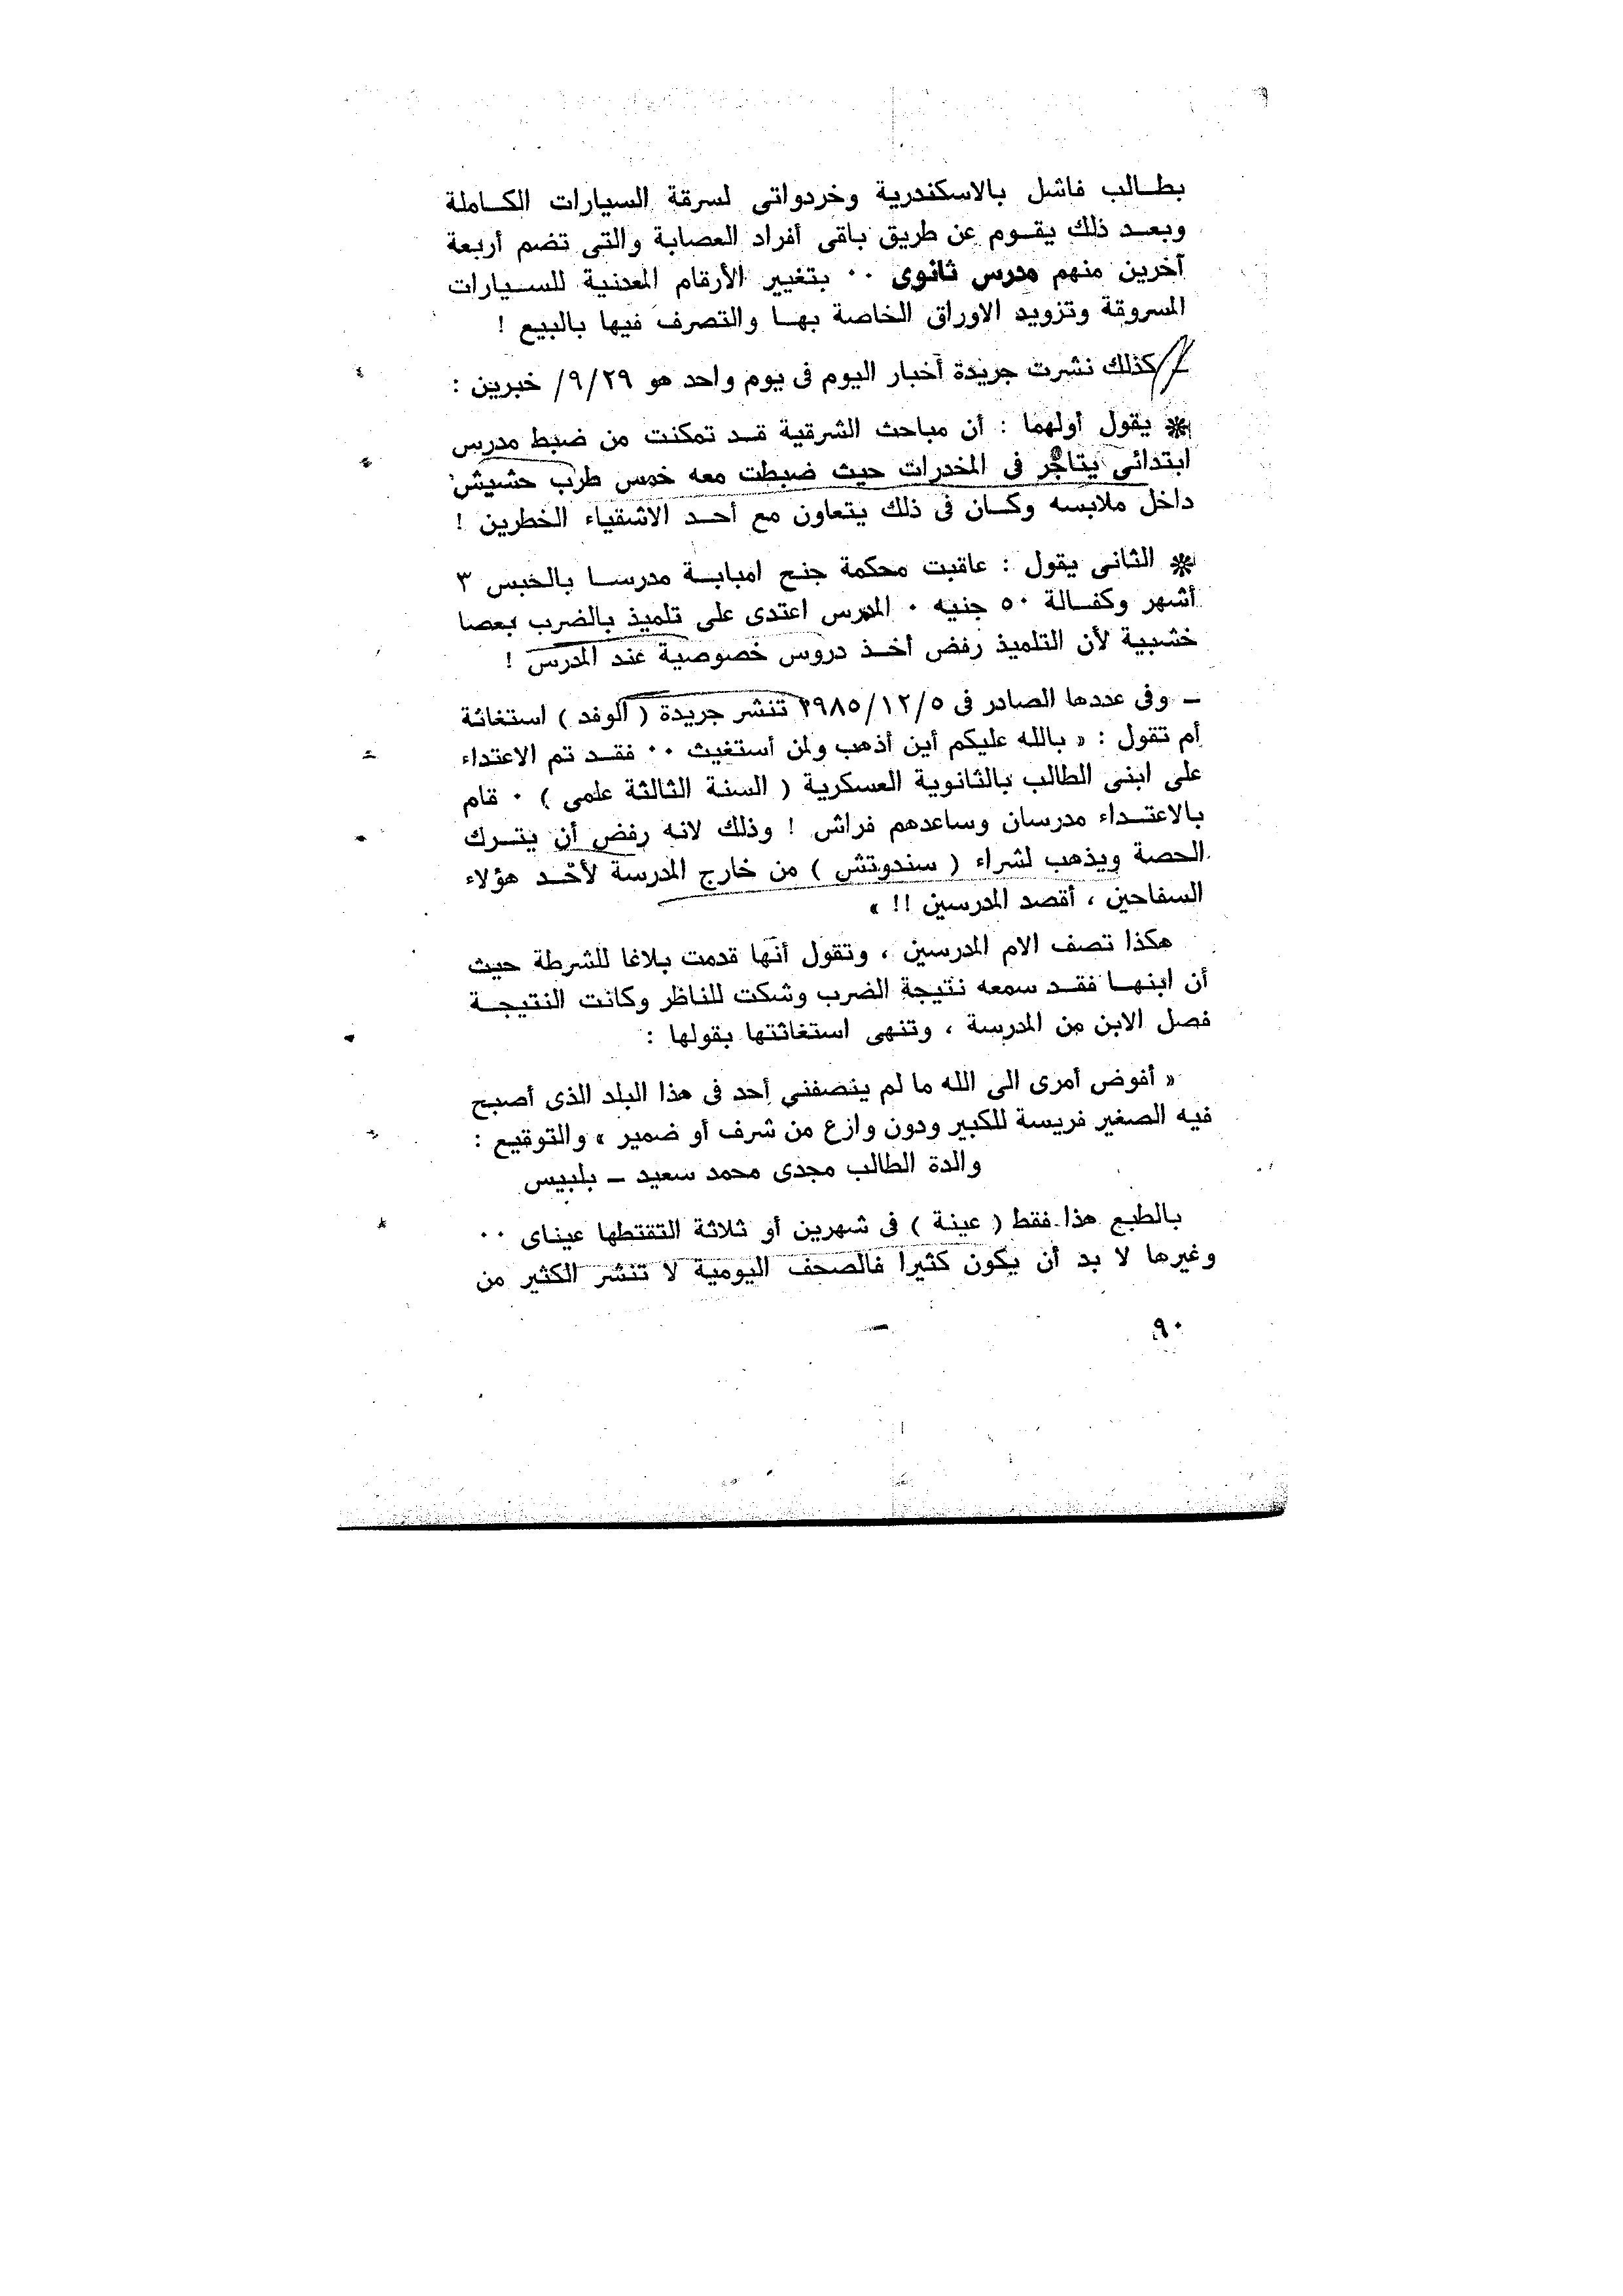 بطالب فاشل بالاسكندرية وخردواتى لسرقة السيارات الكاملة
وبعد ذلك يقوم عن طريق باقى أفراد العصابة والتى تضم أربعة
آخرين منهم مدرس ثانوى ٠٠ بتغيير الأرقام المعدنية للسيارات
المسروقة وتزويد الاوراق الخاصة بها والتصرف فيها بالبيع !
ـ كذلك نشرت جريدة أخبار اليوم فى يوم واحد هو ٩/٢٩/ خبرين :
* يقول أولهما : أن مباحث الشرقية قد تمكنت من ضبط مدرس
ابتدائى يتاجر فى المخدرات حيث ضبطت معه خمس طرب حشيش
داخل ملابسه وكان فى ذلك يتعاون مع أحد الاشقياء الخطرين !
* الثانى يقول : عاقبت محكمة جنح امبابة مدرسا بالحبس ٣
أشهر وكفالة ٥٠ جنيه ٠ المدرس اعتدى على تلميذ بالضرب بعصا
خشبية لأن التلميذ رفض أخذ دروس خصوصية عند المدرس !
ـ وفى عددها الصادر فى ١٩٨٥/١٢/٥ تنشر جريدة ( الوفد ) استغاثة
أم تقول : « بالله عليكم أين أذهب ولمن أستغيث ٠٠ فقد تم الاعتداء
على ابنى الطالب بالثانوية العسكرية ( السنة الثالثة علمى ) ٠ قام
بالاعتداء مدرسان وساعدهم فراش ! وذلك لانه رفض أن يترك
الحصة ويذهب لشراء ( سندوتش ) من خارج المدرسة لأحد هؤلاء
السفاحين ، أقصد المدرسين !! »
هكذا تصف الام المدرسين ، وتقول أنها قدمت بلاغا للشرطة حيث
أن ابنها فقد سمعه نتيجة الضرب وشكت للناظر وكانت النتيجة
فصل الابن من المدرسة ، وتنهى استغاثتها بقولها :
« أفوض أمرى الى الله ما لم ينصفنى أحد فى هذا البلد الذى أصبح
فيه الصغير فريسة للكبير ودون وازع من شرف أو ضمير » والتوقيع :
والدة الطالب مجدى محمد سعيد ـ بلبيس
بالطبع هذا فقط ( عينة ) فى شهرين أو ثلاثة التقتطها عيناى ٠٠
وغيرها لا بد أن يكون كثيرا فالصحف اليومية لا تنشر الكثير من
٩٠